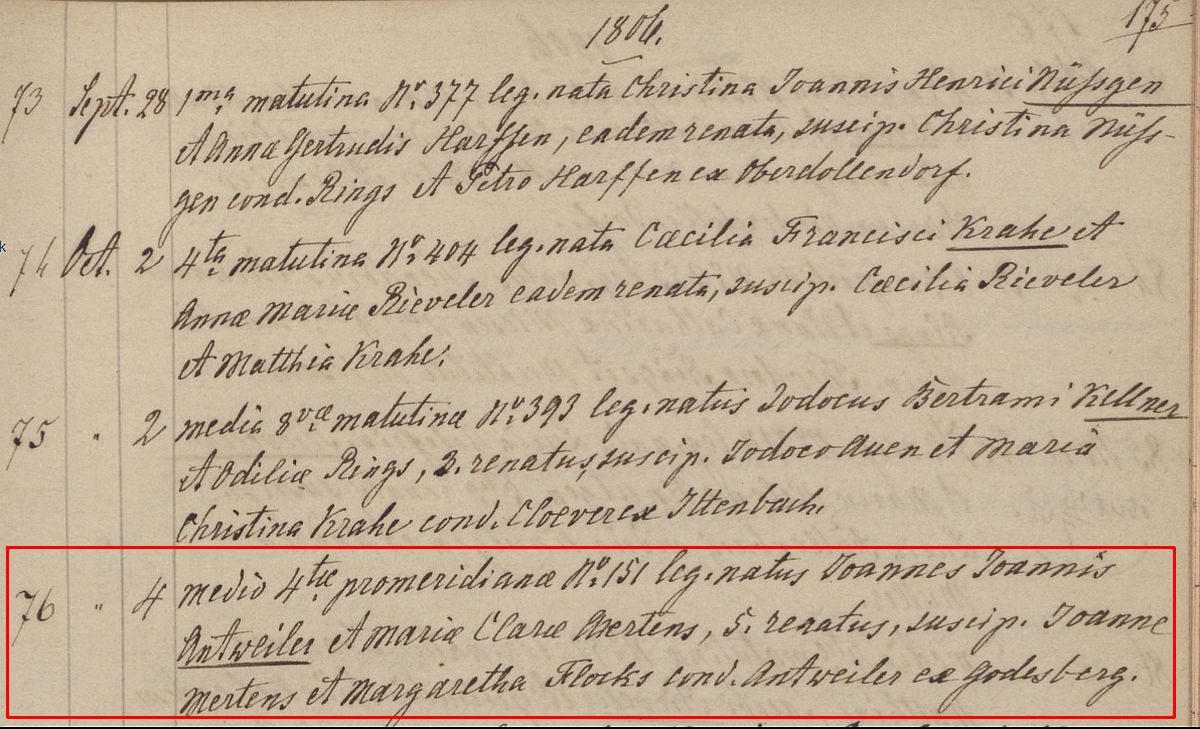 175
1806.
73 Sept. 28 1ma matutina No. 377 leg. nata Christina Joannis Henrici Nüssgen
et Annæ Gertrudis Harffen, eadem renata, suscip. Christina Nüss-
gen cond. Rings et Petro Harffen ex Oberdollendorf.
74 Oct. 2 4ta matutina No. 404 leg. nata Cæcilia Francisci Krahe et
Annæ Mariæ Rieveler eadem renata, suscip. Cæcilia Rieveler
et Matthia Krahe.
75 " 2 media 8væ matutinæ No. 393 leg. natus Jodocus Bertrami Kellner
et Odiliæ Rings, 3. renatus, suscip. Jodoco Auen et Maria
Christina Krahe cond. Cloever ex Ittenbach.
76 " 4 medio 4tæ promeridianæ No. 151 leg. natus Joannes Joannis
Antweiler et Mariæ Claræ Mertens, 5. renatus, suscip. Joanne
Mertens et Margaretha Flocks cond. Antweiler ex Godesberg.